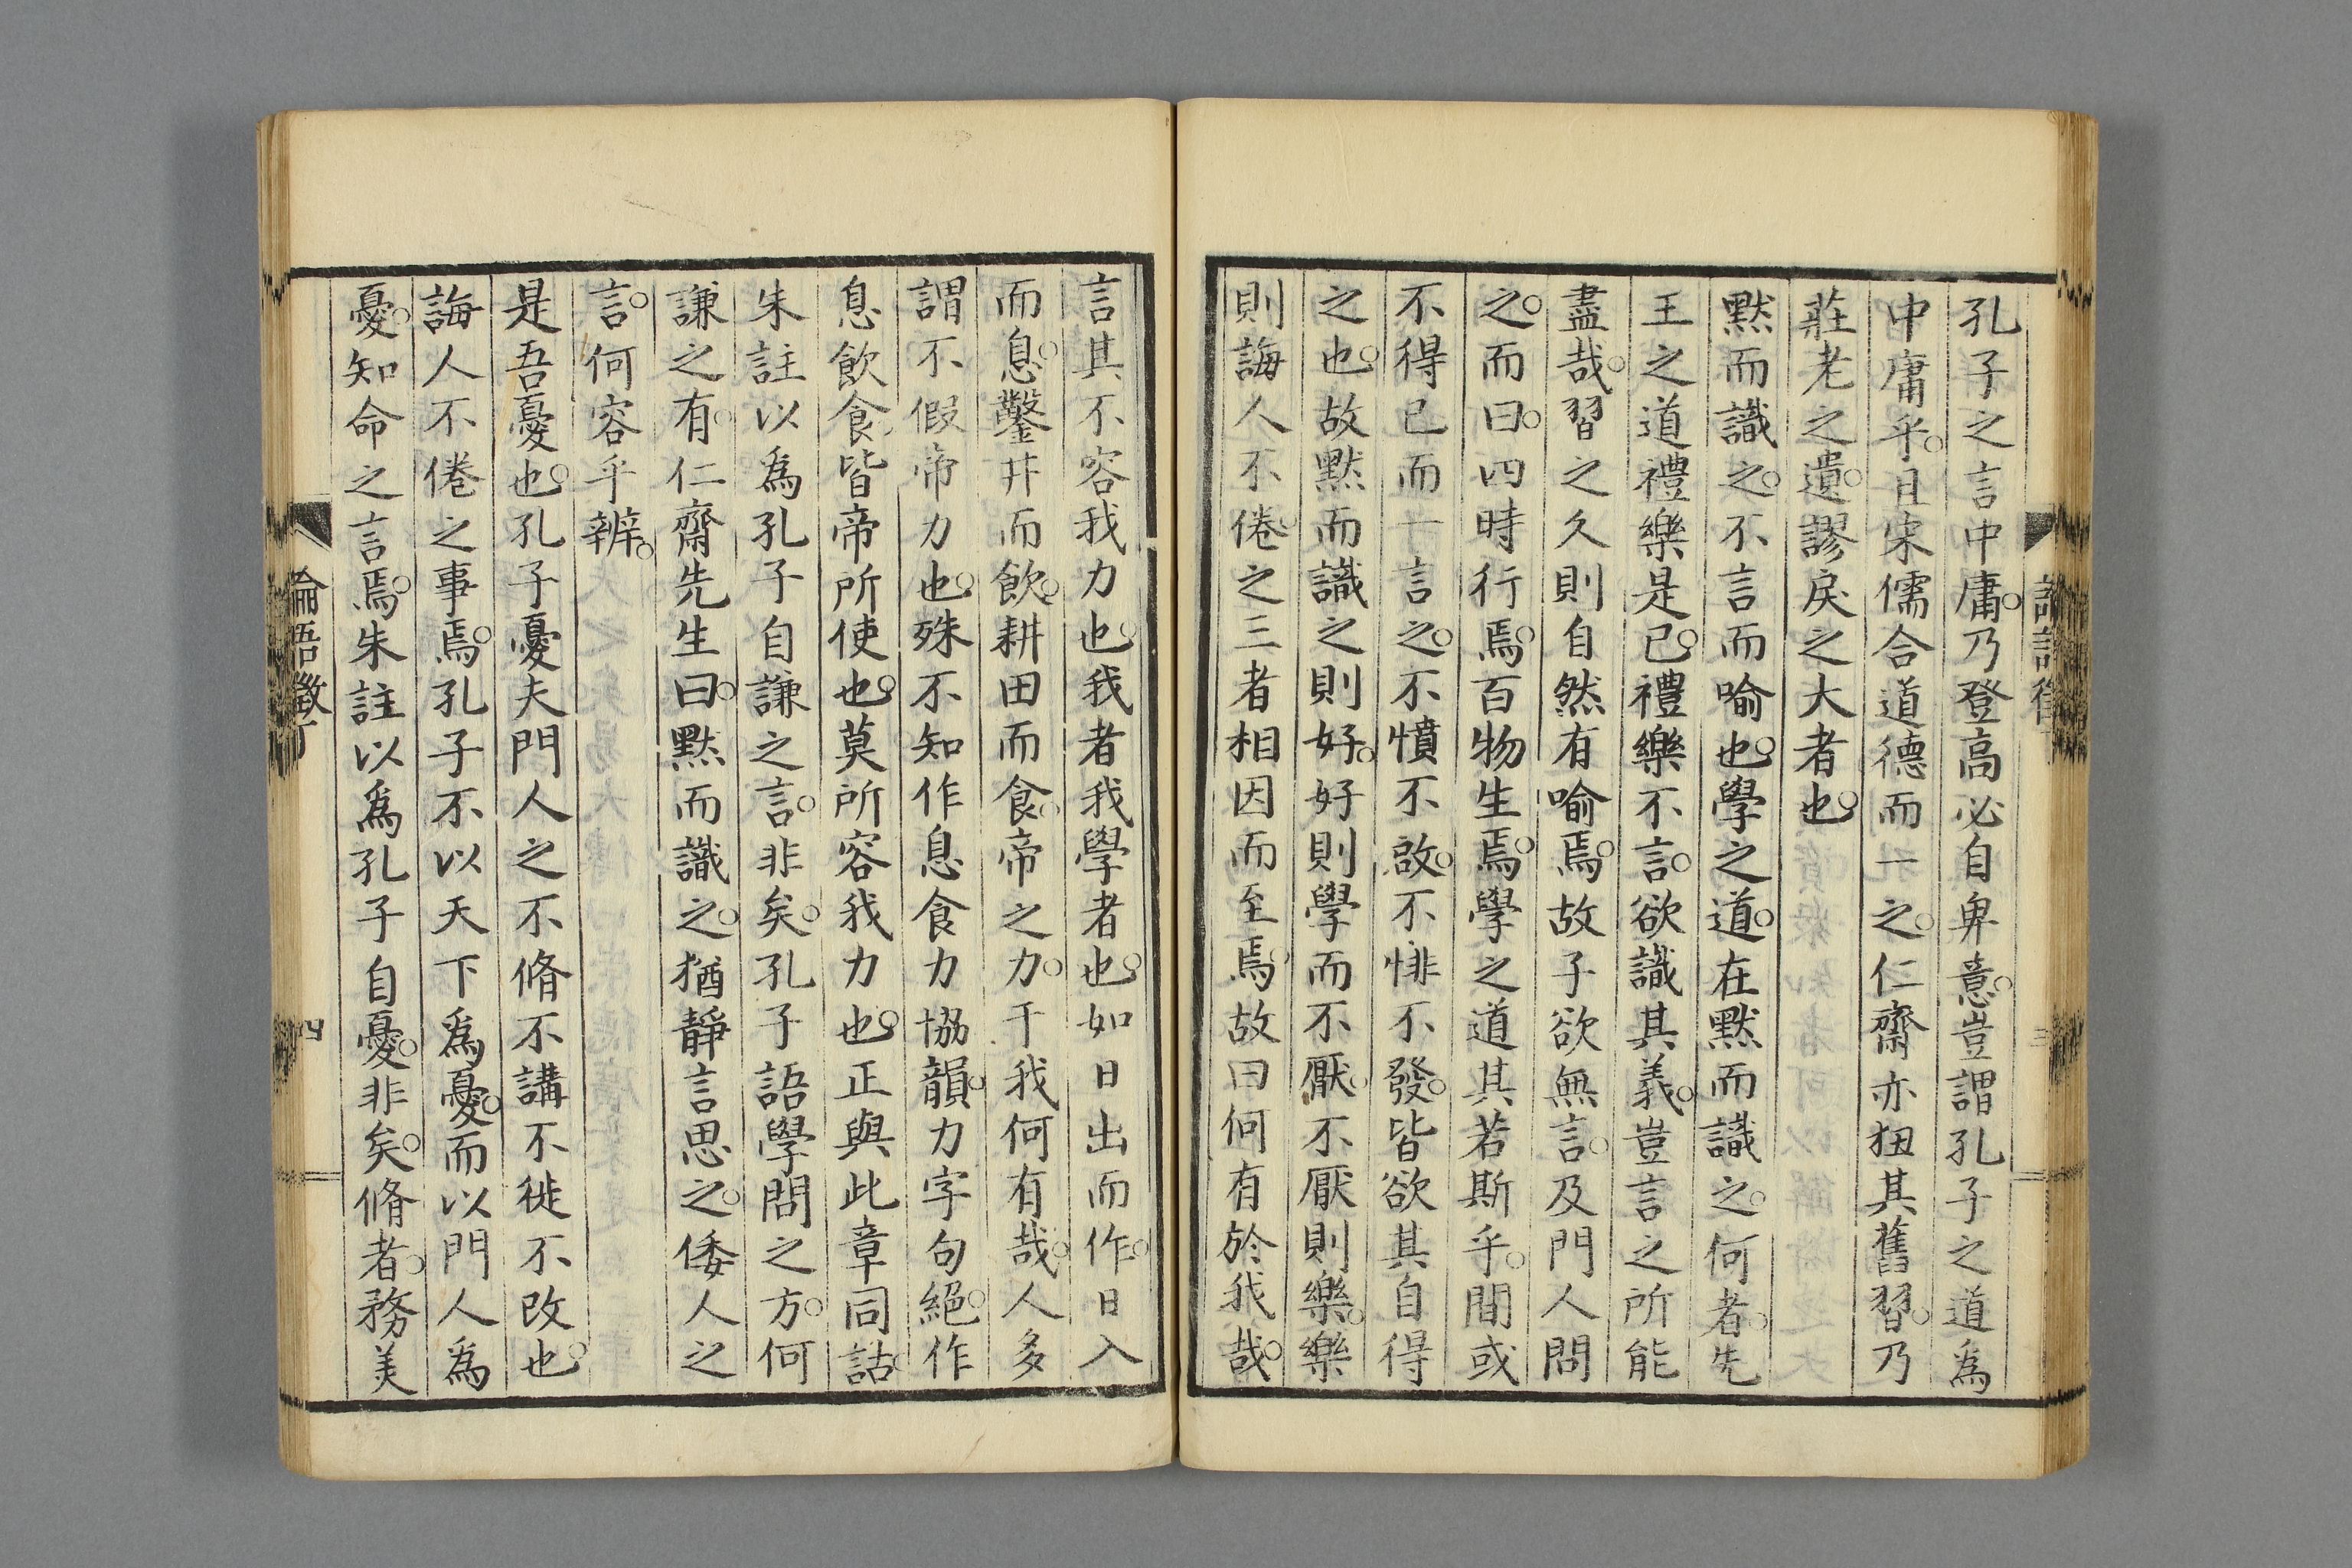 孔子之言中庸。乃登高必自卑意。豈謂孔子之道爲
中庸乎。且宋儒合道德而一之。仁齋亦狃其舊習。乃
莊老之遺。謬戾之大者也。
默而識之。不言而喻也。學之道。在默而識之。何者。先
王之道禮樂是已。禮樂不言。欲識其義。豈言之所能
盡哉。習之久則自然有喻焉。故子欲無言。及門人問
之。而曰。四時行焉。百物生焉。學之道其若斯乎。間或
不得已而一言之。不憤不啟。不悱不發。皆欲其自得
之也。故默而識之則好。好則學而不厭。不厭則樂。樂
則誨人不倦。之三者相因而至焉。故曰何有於我哉。
言其不容我力也。我者我學者也。如日出而作。日入
而息。鑿井而飲。耕田而食。帝之力。干我何有哉。人多
謂不假帝力也。殊不知作息食力協韻。力字句絕。作
息飲食皆帝所使也。莫所容我力也。正與此章同詁。
朱註以爲孔子自謙之言。非矣。孔子語學問之方。何
謙之有。仁齋先生曰。默而識之。猶靜言思之。倭人之
言。何容乎辨。
是吾憂也。孔子憂夫門人之不脩不講不徙不改也。
誨人不倦之事焉。孔子不以天下爲憂。而以門人爲
憂。知命之言焉。朱註以爲孔子自憂。非矣。脩者。務美
論語徵丁
四